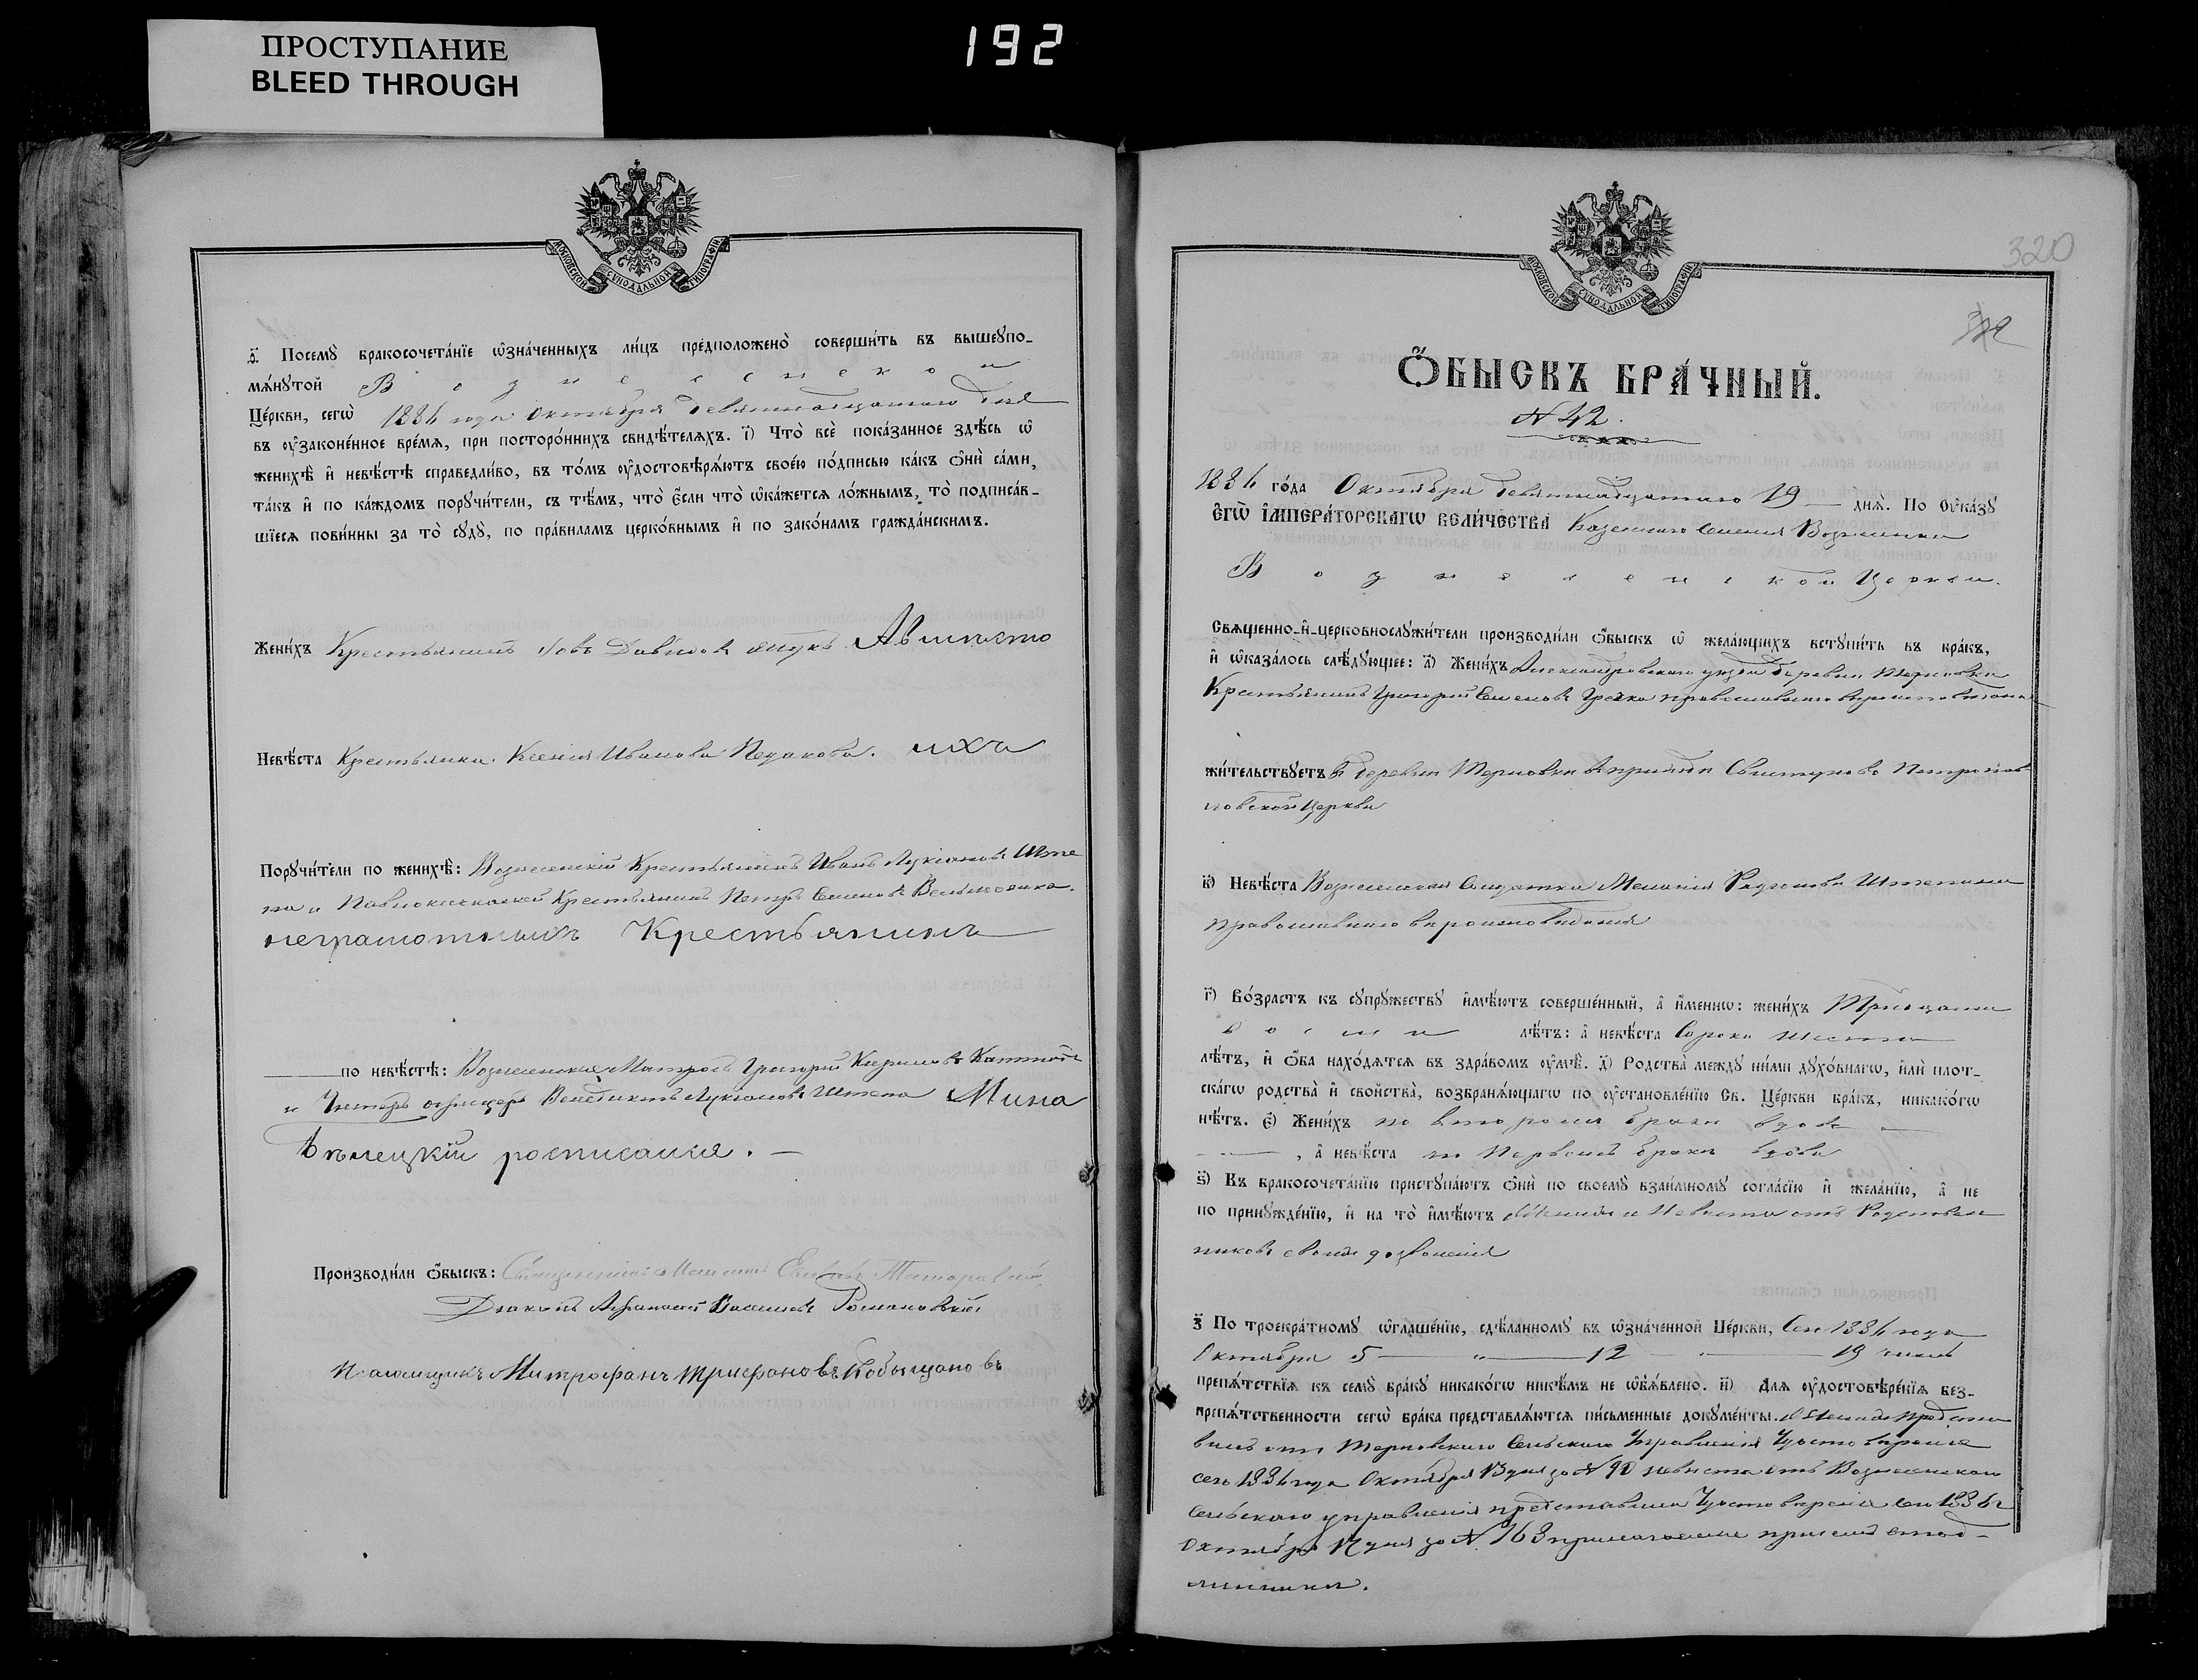 ПРОСТУПАНИЕ
BLEED THROUGH
192
МОСКОВСКОЙ СѴНОДАЛЬНОЙ ТИПОГРАФІИ
Посемꙋ̀ бракосочета́нїе ѡ҆зна́ченныхъ ли́цъ предположено̀ соверши́ть въ вышеꙋпо-
мѧ́нꙋтой Вознесенской
Це́ркви, сегѡ̀ 1886 года Октября девятнадцатаго дня
въ ᲂу҆зако́ненное вре́мѧ, при посторо́ннихъ свидѣ́телѧхъ. і҃) Что̀ всѐ пока́занное здѣ́сь ѡ҆
женихѣ̀ и҆ невѣ́стѣ справедли́во, въ то́мъ ᲂу҆достовѣрѧ́ютъ свое́ю по́дписью ка́къ ѻ҆нѝ са́ми,
та́къ и҆ по ка́ждомъ порꙋчи́тели, съ тѣ́мъ, что̀ є҆́сли что̀ ѡ҆ка́жетсѧ ло́жнымъ, то̀ подписа́в-
шїесѧ пови́нны за то̀ сꙋдꙋ̀, по пра́виламъ церко́внымъ и҆ по зако́намъ гражда́нскимъ.
Жени́хъ Крестьянинъ Іовъ Давидовъ
Невѣ́ста Крестьянка Ксенія Иванова ихъ
Порꙋчи́тели по женихѣ̀: Вознесенскій Крестьянинъ Иванъ ЛукіановъШте
па и Павлокичкаскій Крестьянинъ Петръ Семеновъ
неграмотныхъ Крестьянинъ
по невѣ́стѣ: Вознесенскіе Матросъ Григорій Кириловъ
и Унтеръ офицеръ Венедиктъ Лукіановъ Штепа Мина
Бѣлецкій росписался.
Производи́ли ѻ҆́быскъ: Священникъ
Діаконъ Афанасій Васильевъ Романовскій
Псаломщикъ Митрофанъ Трифоновъ
320
Ѻ҆́БЫСКЪ БРА́ЧНЫЙ.
№ 42.
1886 го́да Октября девятнадцатаго 19 днѧ̀. По Оу҆ка́зꙋ
Е҆гѡ̀ І҆мпера́торскагѡ Вели́чества Казеннаго Селенія Вознесенки
Вознесенской Церкви.
Свѧще́нно-и҆-церковнослꙋжи́тели производи́ли ѻ҆́быскъ ѡ҆ жела́ющихъ встꙋпи́ть въ бра́къ,
и҆ ѡ҆каза́лось слѣ́дꙋющее: а҃) Жени́хъ Александровскаго уѣзда деревни Терновки
Крестьянинъ Григорій Семеновъ Гречка православнаго вѣроисповѣданія
жи́тельствꙋетъ въ деревни Терновки въ приходѣ Свистуново Петропав
ловской Церкви
в҃) Невѣ́ста Вознесенская Солдатка Меланія Родіонова Штепина
православнаго вѣроисповѣданія
г҃) Во́зрастъ къ сꙋпрꙋ́жествꙋ и҆мѣ́ютъ соверше́нный, а҆ и҆́меннѡ: жени́хъ Тридцати
восьми лѣ́тъ: а҆ невѣ́ста Сорока шести
лѣ́тъ, и҆ ѻ҆́ба нахо́дѧтсѧ въ здра́вомъ ᲂу҆мѣ̀. д҃) Родства̀ междꙋ ни́ми дꙋхо́внагѡ, и҆лѝ плот-
ска́гѡ родства̀ и҆ свойства̀, возбранѧ́ющагѡ по ᲂу҆становле́нїю Св. Це́ркви бра́къ, никако́гѡ
нѣ́тъ. є҃) Жени́хъ по второмъ бракѣ вдовъ
, а҆ невѣ́ста по первомъ бракѣ вдова
ѕ҃) Къ бракосочета́нїю пристꙋпа́ютъ ѻ҆нѝ по своемꙋ̀ взаи́мномꙋ согла́сїю и҆ жела́нїю, а҆ не
по принꙋжде́нїю, и҆ на то̀ и҆мѣ́ютъ Женихъ и Невѣста отъ Родствен
никовъ своихъ дозволенія
з҃ По троекра́тномꙋ ѡ҆глаше́нїю, сдѣ́ланномꙋ въ ѡ҆зна́ченной Це́ркви, Сего 1886 года
Октября 5 — „ — 12 — „ — 19 чиселъ
препѧ́тствїѧ къ семꙋ̀ бра́кꙋ никако́гѡ никѣ́мъ не ѡ҆бъѧ́влено. и҃) Длѧ ᲂу҆достовѣре́нїѧ без-
препѧ́тственности сегѡ̀ бра́ка представлѧ́ютсѧ пи́сьменные докꙋме́нты. Женихъ предста
вилъ отъ Терновскаго Сельскаго Управленія Удостовѣреніе
сего 1886 года Октября 13 дня за № 90 невѣста отъ Вознесенскаго
Сельскаго управленія представила Удостовѣреніе сего 1886 г
Октября 17 дня за № 163 прилагаемые при семъ въ под-
линникѣ.